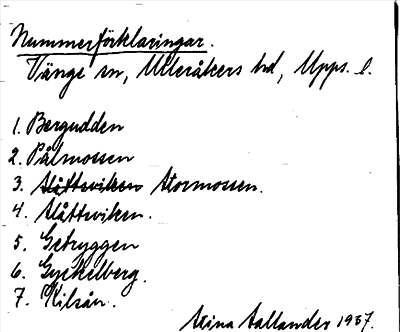 Nummerförklaringar.
Vänge sn, Ulleråkers hd, Upps. l.
1. Bergudden
2. Pålmossen
3. Slåtteviken Stormossen.
4. Slåtteviken.
5. Getryggen
6. Gyckelberg.
7. Kilsån.
Stina Sallander 1937.